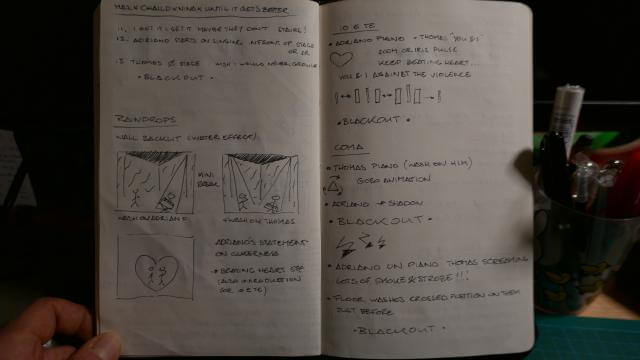 UNTIL IT GETS BETTER
11. I GET IT I GET IT MAYBE THEY DON'T STARE!
12. ADRIANO STARTS ON SINGING INFRONT OF STAGE
OR AR
13 THOMAS Ø STAGE WISH I WOULD NEVER
• BLACKOUT •
RAINDROPS
WALL BACKLIT (WATER EFFECT)
MINI
BREAK
WASH ON ADRIANO
WASH ON THOMAS
ADRIANO'S STATEMENT
ON QUEERNESS
→ BEATING HEART
(ALSO INTRODUCTION
FOR IO E TE)
IO E TE
• ADRIANO PIANO • THOMAS "YOU & I"
ZOOM OR IRIS PULSE
KEEP BEATING HEART...
YOU & I AGAINST THE VIOLENCE
• BLACKOUT •
COMA
• THOMAS PIANO (WASH ON HIM)
GOBO ANIMATION
• ADRIANO → SHADOW
• BLACKOUT •
• ADRIANO ON PIANO THOMAS SCREAMING
LOTS OF SMOKE & STROBE!!!
• FLOOR WASHES CROSSED POSITION ON THEM
JUST BEFORE
• BLACKOUT •